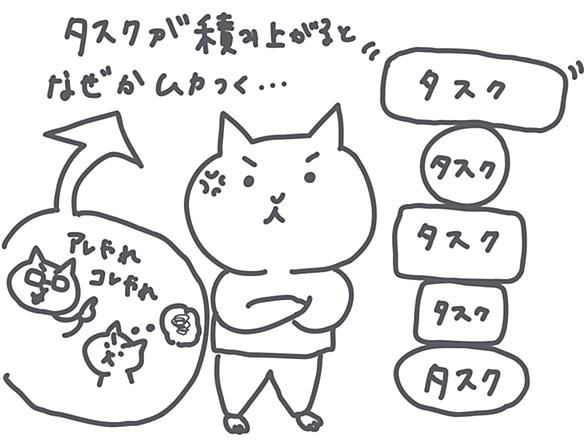 タスクが積み上がると
なぜかムカつく…
アレやれ
コレやれ
タスク
タスク
タスク
タスク
タスク